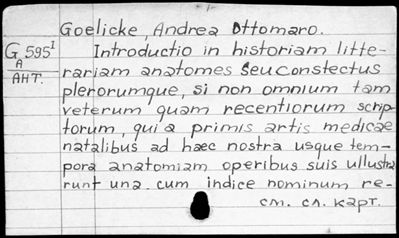 Goelicke, Andrea Ottomaro.
G 595¹
A
АНТ.
Introductio in historiam litte-
rariam anatomes seu constectus
plerorumque, si non omnium tam
veterum quam recentiorum scrip-
torum, qui a primis artis medicae
natalibus ad haec nostra usque tem-
pora anatomiam operibus suis ullustra
runt una cum indice nominum re-
см. сл. карт.